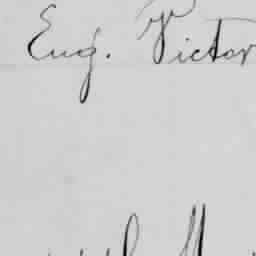 Eug. Victor